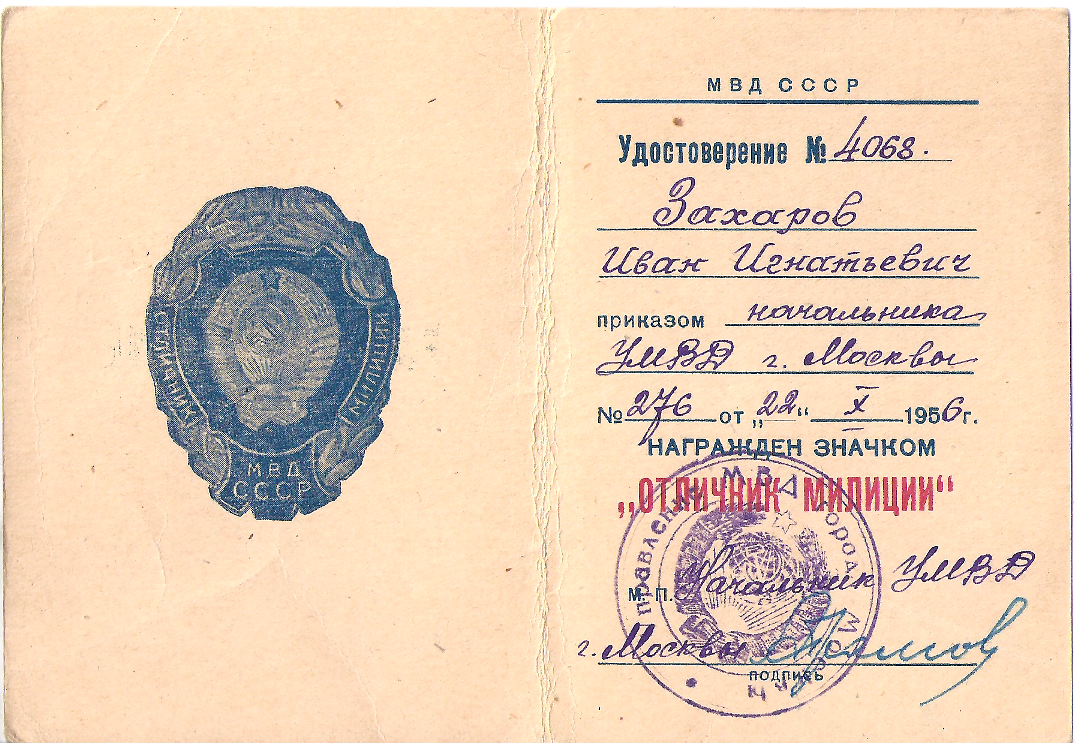 ОТЛИЧНИК МИЛИЦИИ
МВД
СССР
МВД СССР
Удостоверение № 4068.
Захаров
Иван Игнатьевич
приказом начальника
УМВД г. Москвы
№ 276 от „22“ X 1956 г.
НАГРАЖДЕН ЗНАЧКОМ
„ОТЛИЧНИК МИЛИЦИИ“
Управление МВД города Москвы
М. П. Начальник УМВД
г. Москвы
подпись